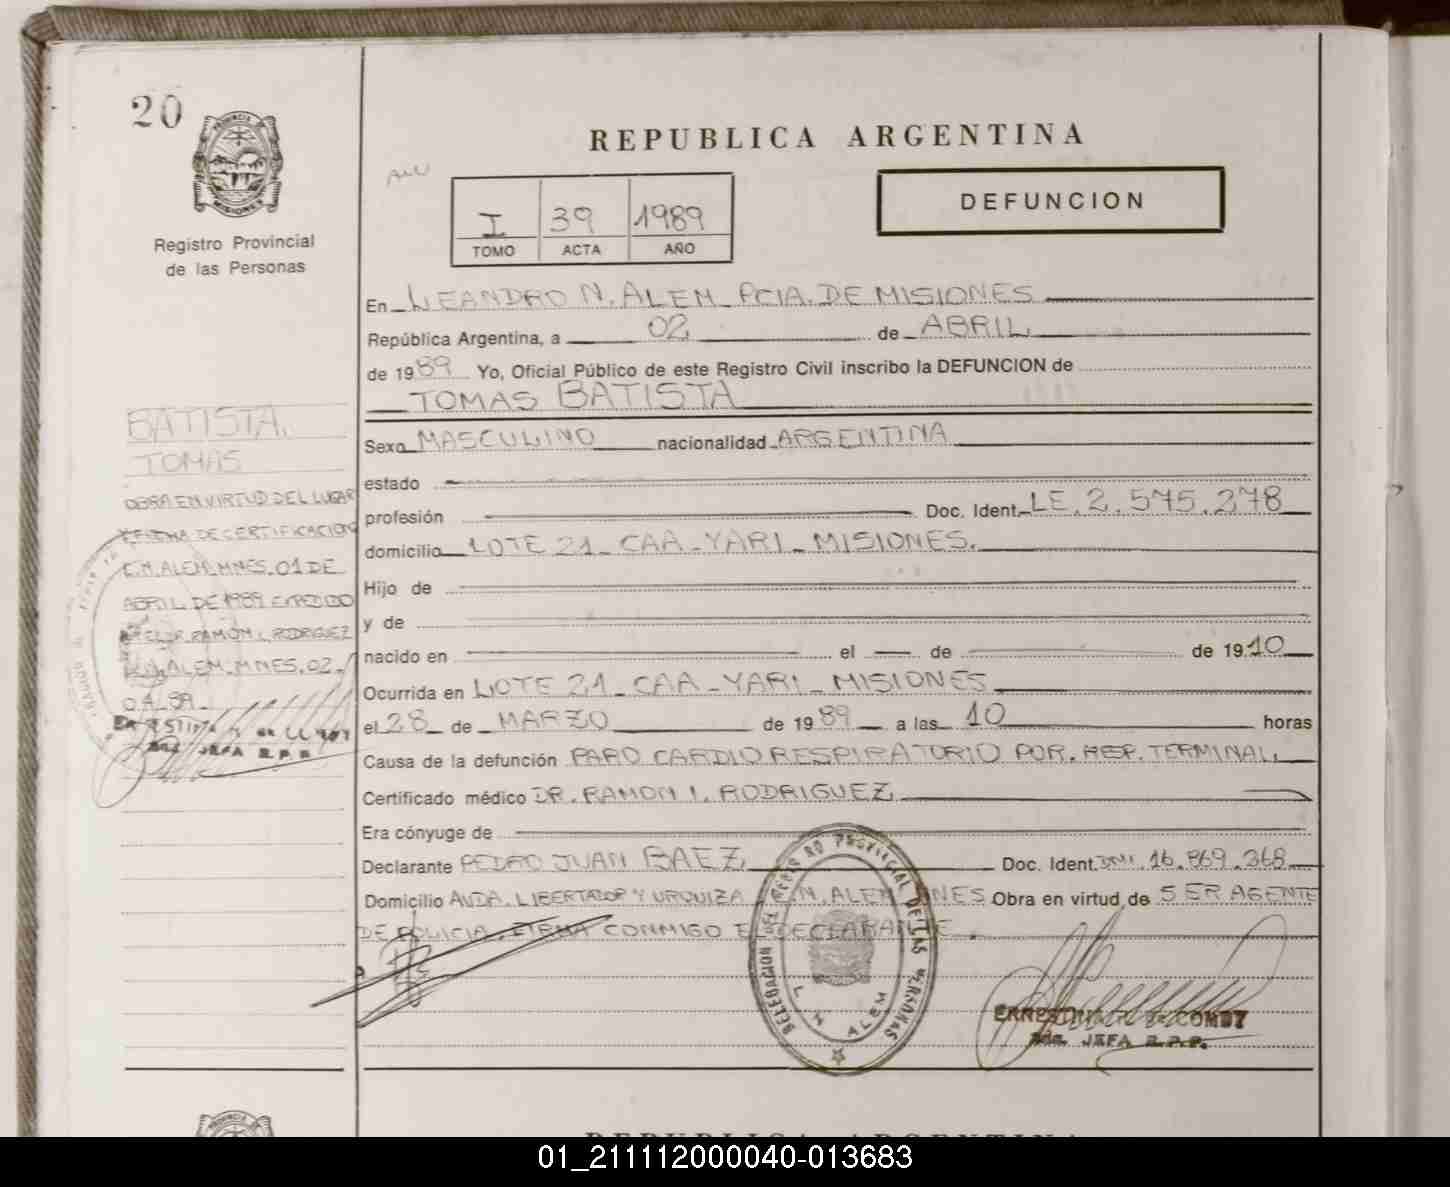 20
PROVINCIA DE
MISIONES
Registro Provincial
de las Personas
REPUBLICA ARGENTINA
DEFUNCION
I 39 1989
TOMO ACTA AÑO
En LEANDRO N. ALEM PCIA. DE MISIONES
República Argentina, a 02 de ABRIL
de 1989 Yo, Oficial Público de este Registro Civil inscribo la DEFUNCION de
TOMAS BATISTA
Sexo MASCULINO nacionalidad ARGENTINA
estado
profesión Doc. Ident. LE. 2.575.278
domicilio LOTE 21 - CAA - YARI - MISIONES.
Hijo de
y de
nacido en el de de 1910
Ocurrida en LOTE 21 - CAA - YARI - MISIONES
el 28 de MARZO de 1989 a las 10 horas
Causa de la defunción PARO CARDIO RESPIRATORIO POR. HEP. TERMINAL.
Certificado médico DR. RAMON I. RODRIGUEZ
Era cónyuge de
Declarante PEDRO JUAN BAEZ Doc. Ident. DNI. 16.869.368
Domicilio AVDA. LIBERTADOR Y URQUIZA L.N. ALEM MNES Obra en virtud de SER AGENTE
DE POLICIA. FIRMA CONMIGO EL DECLARANTE.
BATISTA.
TOMAS
OBRA EN VIRTUD DEL LUGAR
Y FECHA DE CERTIFICACION
L.N. ALEM. MNES. 01 DE
ABRIL DE 1989 EXPEDIDO
EL DR. RAMON I. RODRIGUEZ
L.N. ALEM. MNES. 02
04. 89
JEFA R.P.P.
DELEGACION DEL REGISTRO PROVINCIAL DE LAS PERSONAS
L. N. ALEM
JEFA R.P.P.
REPUBLICA ARGENTINA
01_211112000040-013683